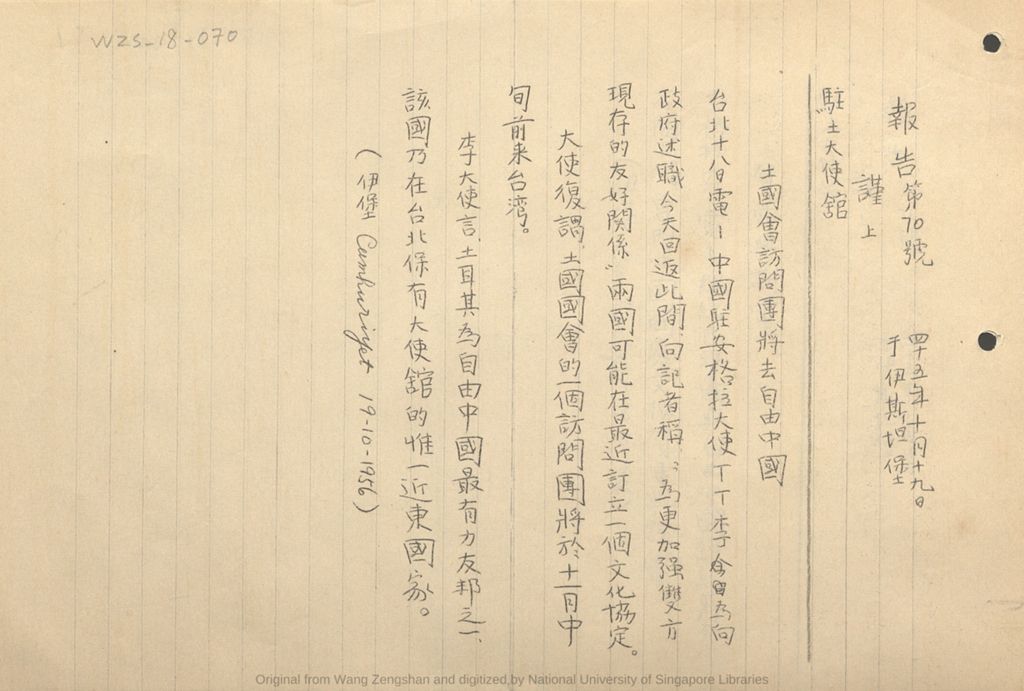 WZS-18-070
報告第70號
四十五年十月十九日
于伊斯坦堡
謹上
駐土大使舘
土國會訪問團將去自由中國
台北十八日電——中國駐安格拉大使TT李今日為向
政府述職今天回返此間向記者稱：“為更加强雙方
現存的友好関係”兩國可能在最近訂立一個文化協定。
大使復謂，土國國會的一個訪問團將於十一月中
旬前来台湾。
李大使言，土耳其為自由中國最有力友邦之一，
該國乃在台北保有大使舘的惟一近東國家。
（伊堡 Cumhuriyet 19-10-1956）
Original from Wang Zengshan and digitized by National University of Singapore Libraries